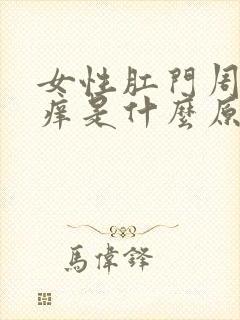 女性肛門周
痒是什麼原
馬偉鋒